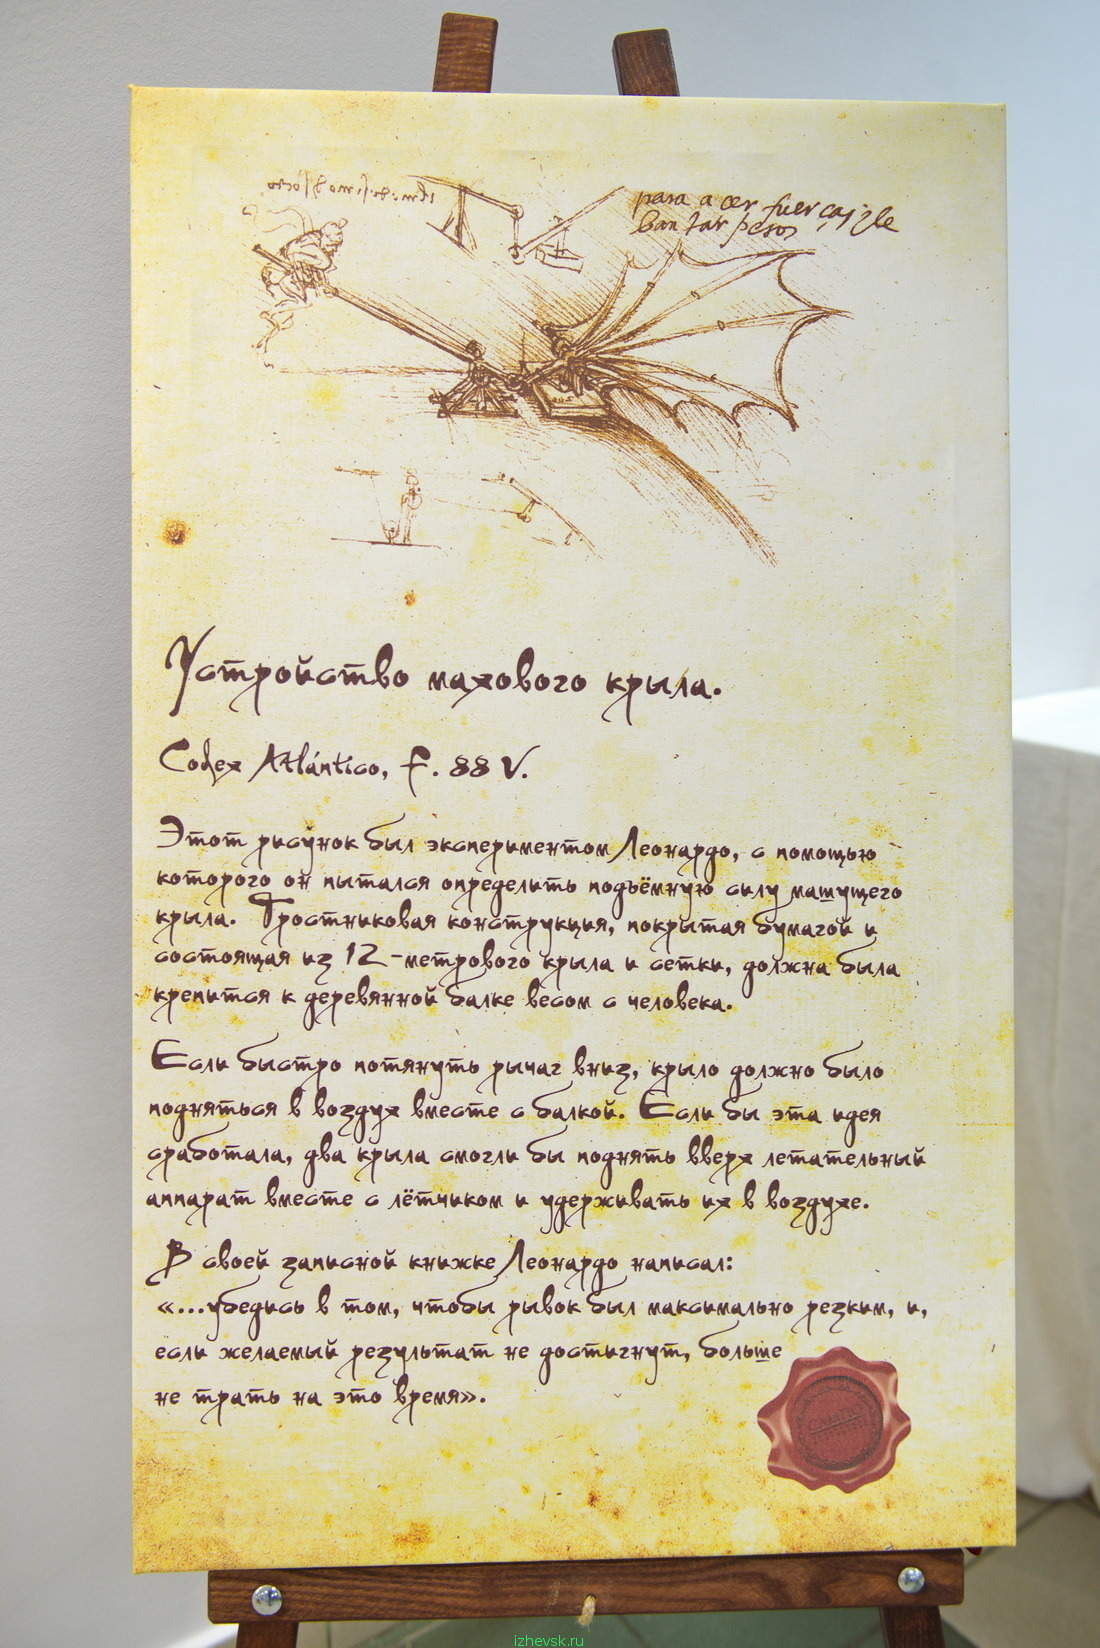 para a cer fuer
ban tar pesos
Устройство махового крыла.
Codex Atlántico, f. 88 V.
Этот рисунок был экспериментом Леонардо, с помощью
которого он пытался определить подъёмную силу машущего
крыла. Тростниковая конструкция, покрытая бумагой и
состоящая из 12-метрового крыла и сетки, должна была
крепится к деревянной балке весом с человека.
Если быстро потянуть рычаг вниз, крыло должно было
подняться в воздух вместе с балкой. Если бы эта идея
сработала, два крыла смогли бы поднять вверх летательный
аппарат вместе с лётчиком и удерживать их в воздухе.
В своей записной книжке Леонардо написал:
«...убедись в том, чтобы рывок был максимально резким, и,
если желаемый результат не достигнут, больше
не трать на это время».
izhevsk.ru